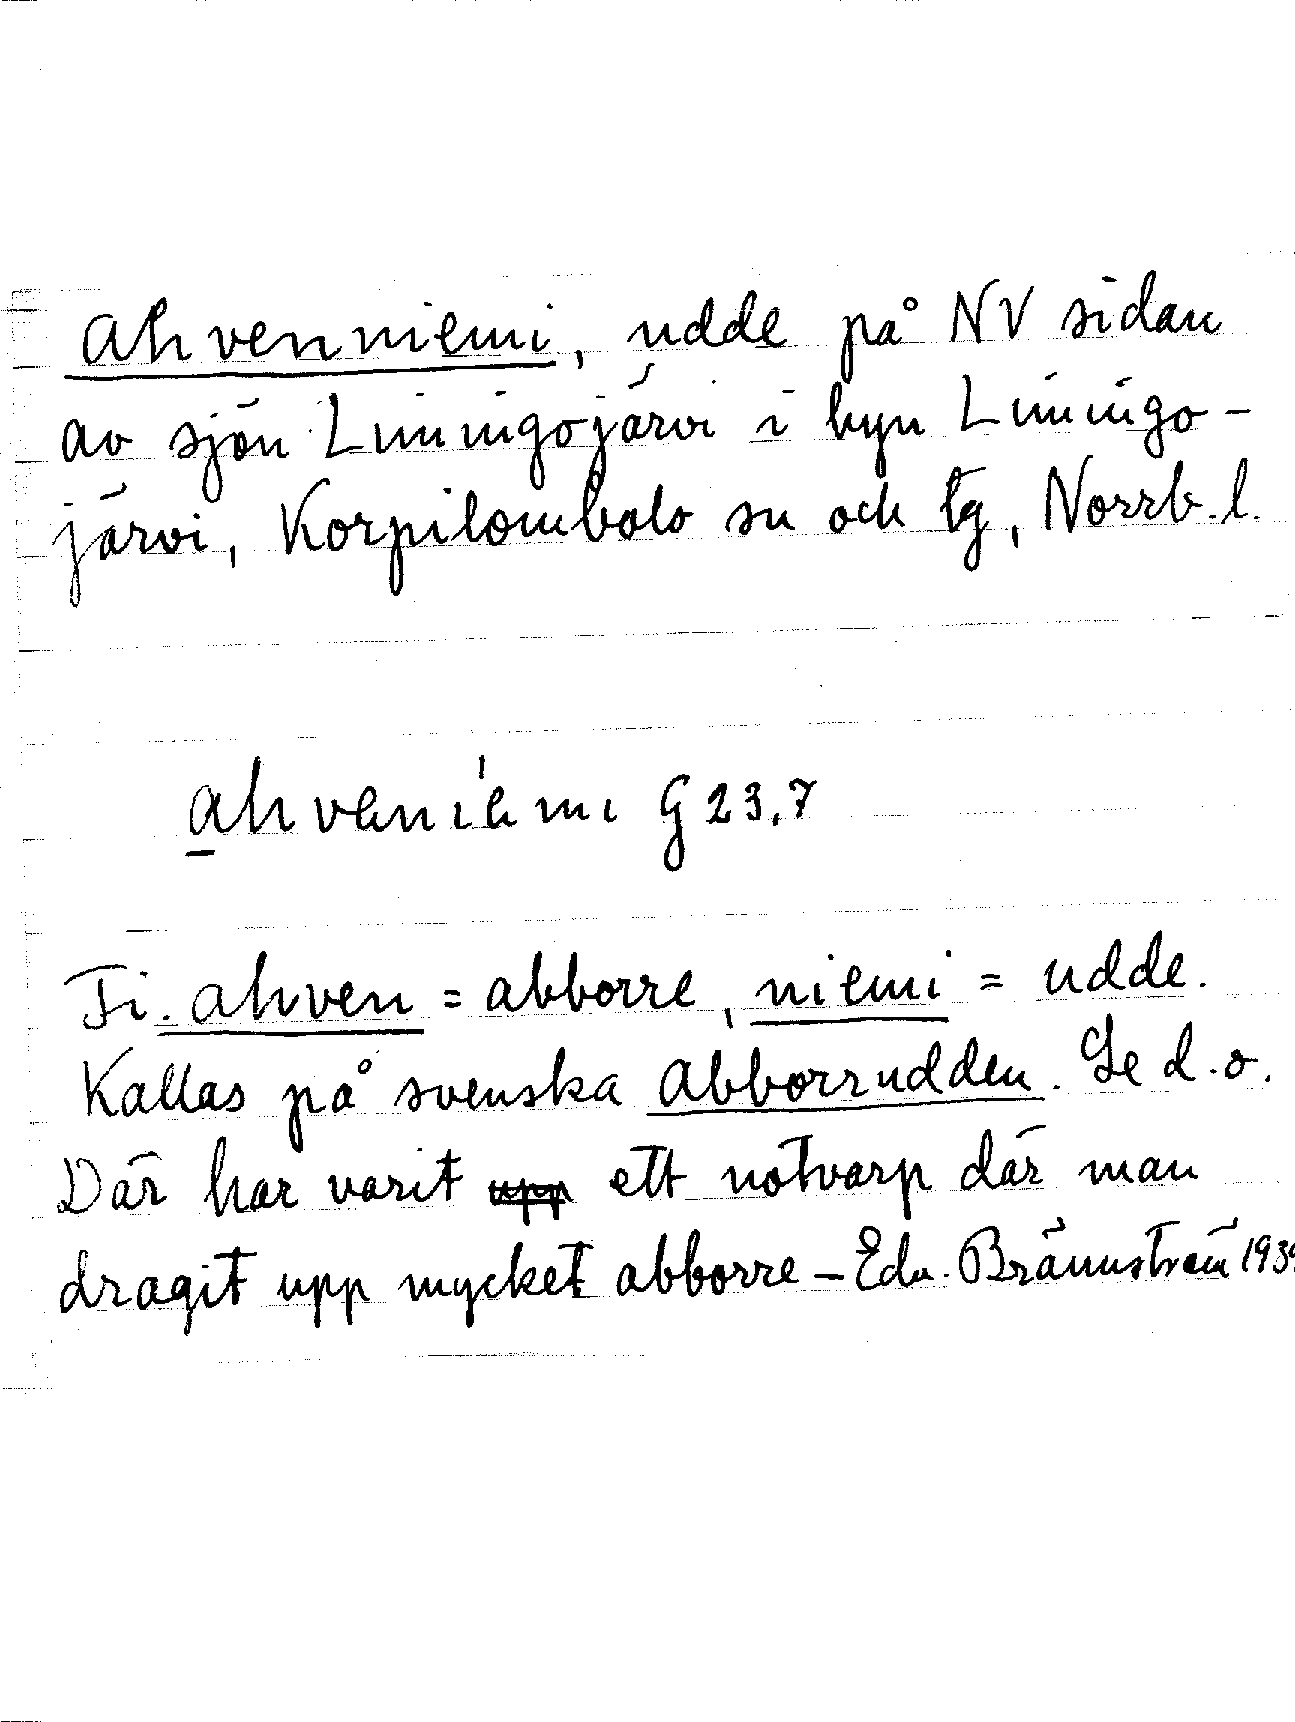 Ahvenniemi, udde på NV sidan
av sjön Liminigojärvi i byn Liminigo-
järvi, Korpilombolo sn och tg, Norrb. l.
ahveniemi G 23.7
Fi. ahven = abborre, niemi = udde.
Kallas på svenska Abborrudden. Se d. o.
Där har varit upp ett notvarp där man
dragit upp mycket abborre – Edv. Brännström